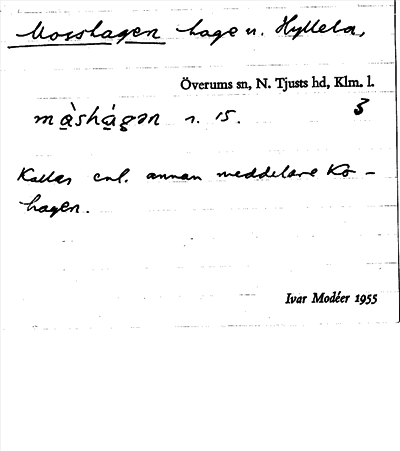 Morshagen hage n. Hyllela,
Överums sn, N. Tjusts hd, Klm. l.
3
màshágən r. 15.
Kallas enl. annan meddelare Ko-
hagen.
Ivar Modéer 1955